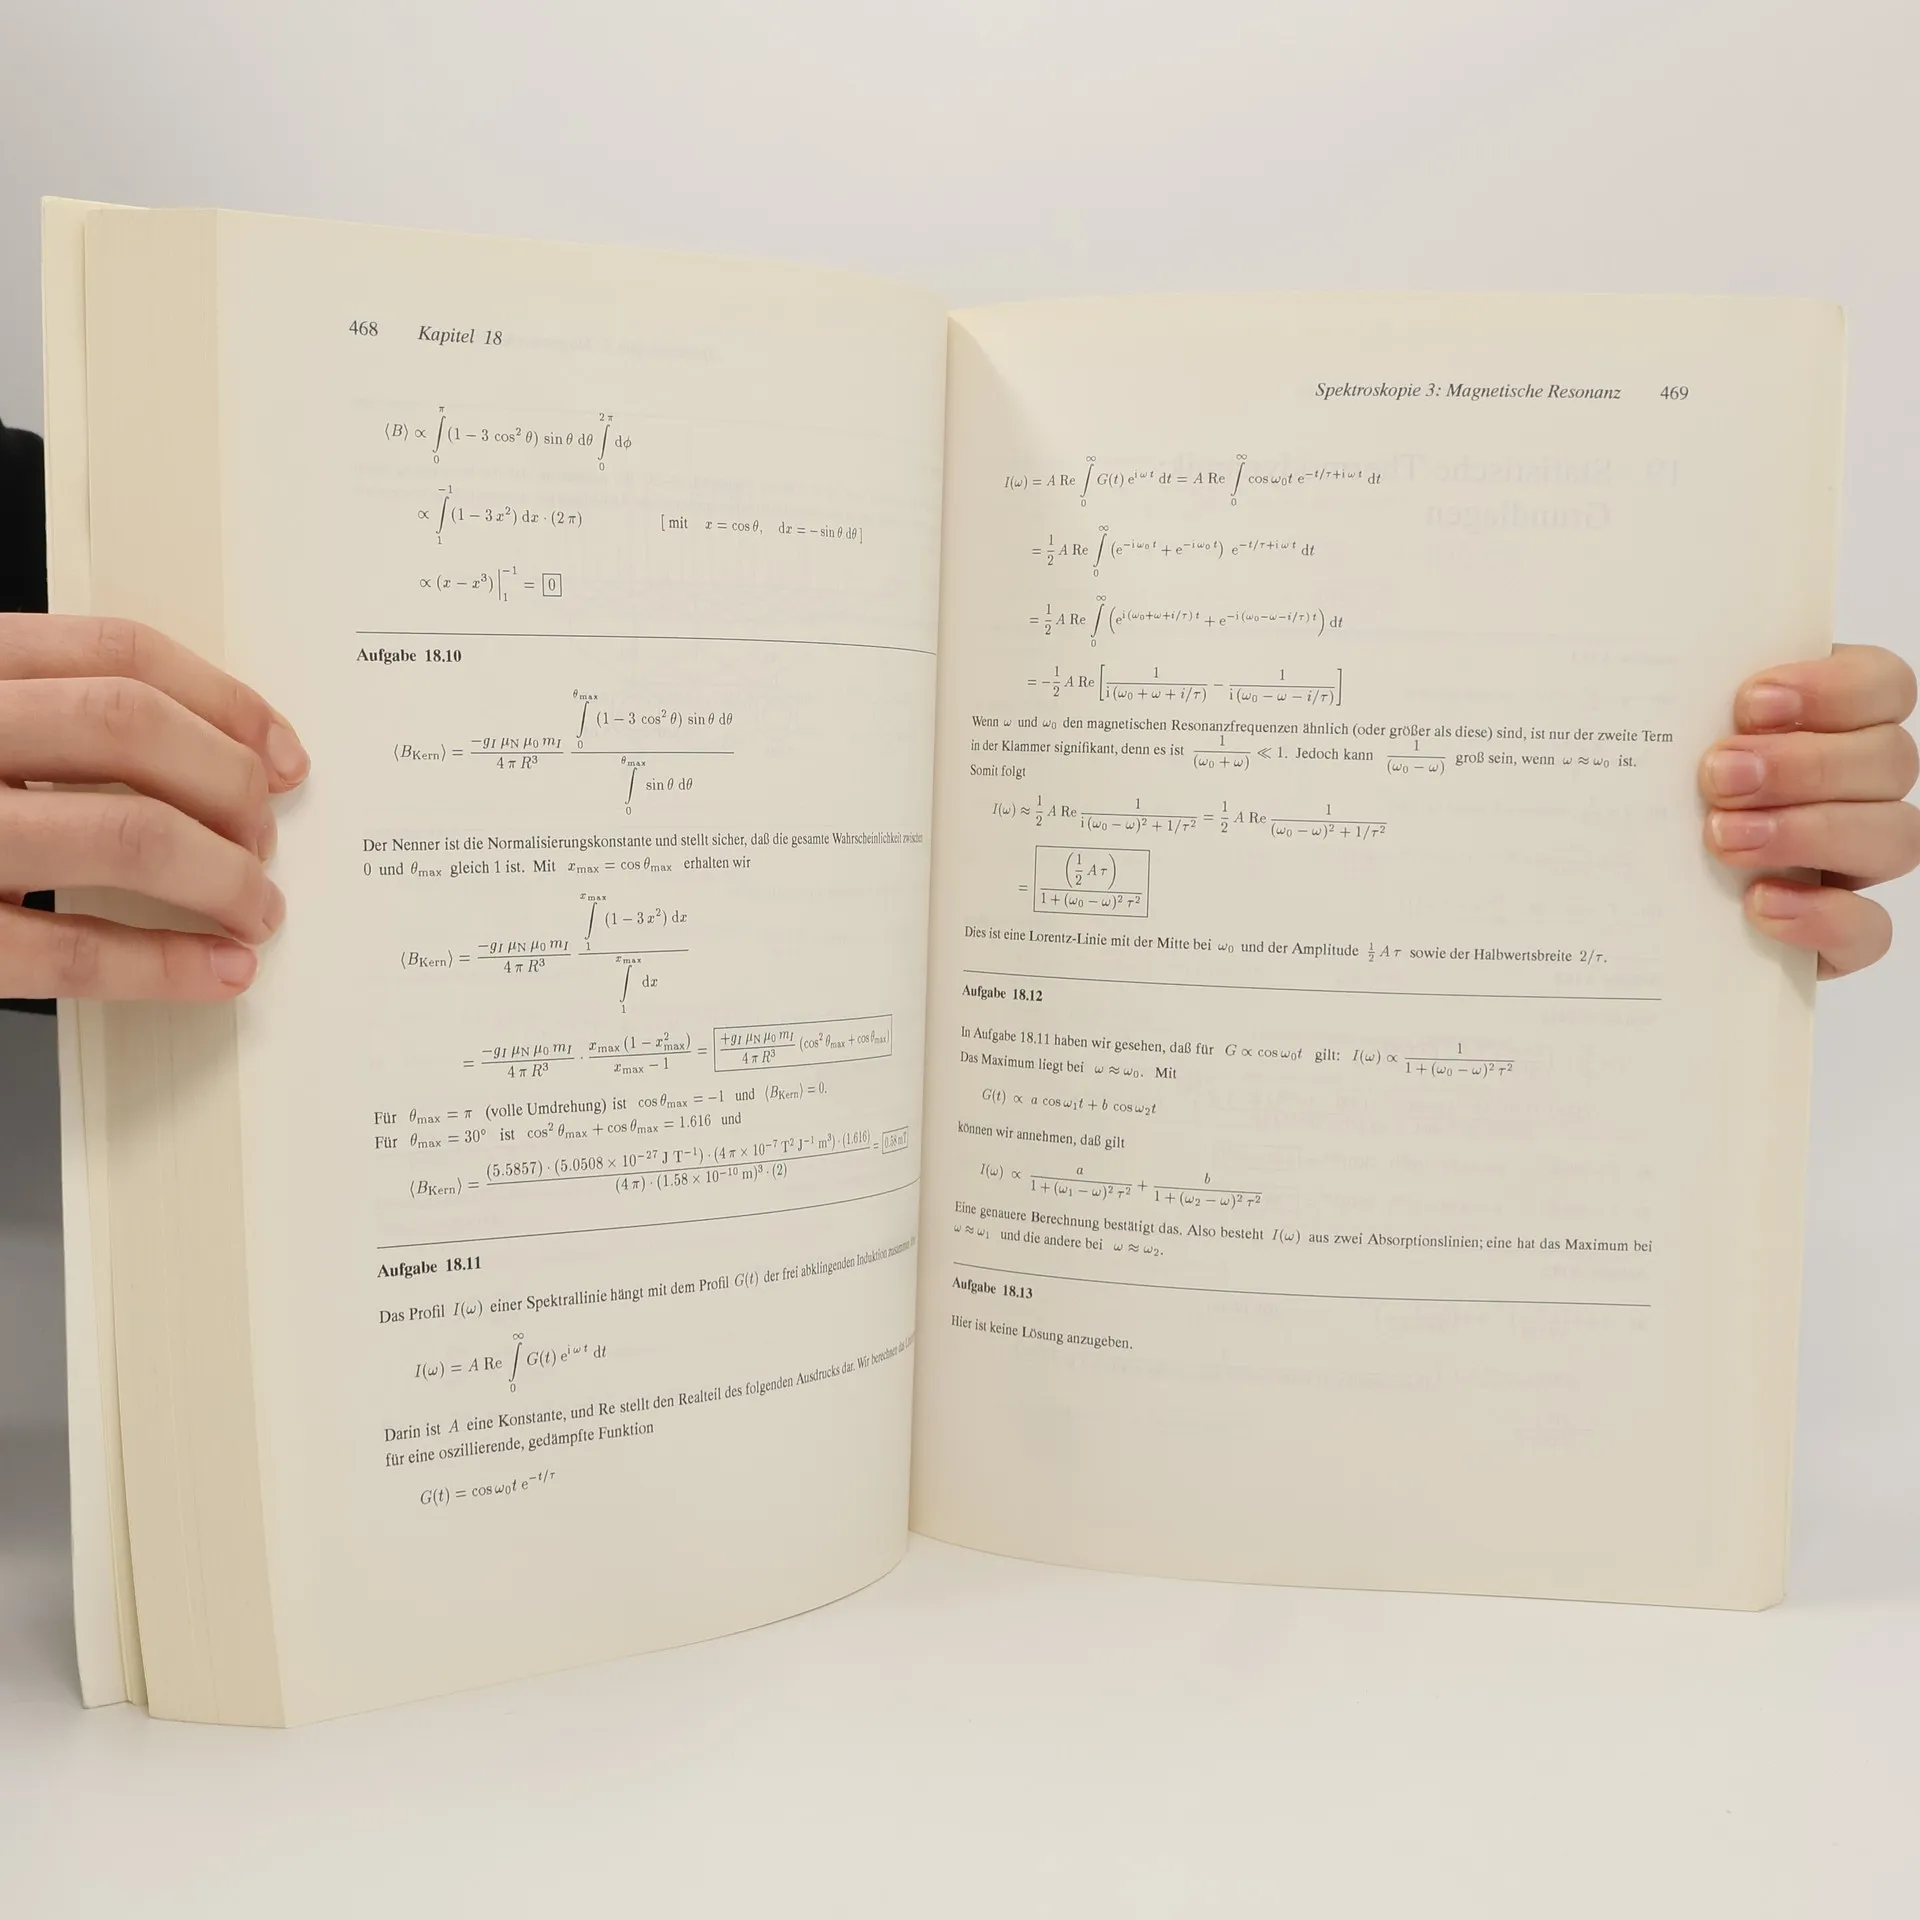 468 Kapitel 18
⟨B⟩ ∝ ∫₀^π (1 − 3 cos² θ) sin θ dθ ∫₀^{2π} dϕ
∝ ∫₁^{−1} (1 − 3 x²) dx · (2 π) [mit x = cos θ, dx = − sin θ dθ]
∝ (x − x³)|₁^{−1} = 0
Aufgabe 18.10
⟨B_Kern⟩ = (−g_I μ_N μ₀ m_I)/(4 π R³) (∫₀^{θ_max} (1 − 3 cos² θ) sin θ dθ)/(∫₀^{θ_max} sin θ dθ)
Der Nenner ist die Normalisierungskonstante und stellt sicher, daß die gesamte Wahrscheinlichkeit zwischen
0 und θ_max gleich 1 ist. Mit x_max = cos θ_max erhalten wir
⟨B_Kern⟩ = (−g_I μ_N μ₀ m_I)/(4 π R³) (∫₁^{x_max} (1 − 3 x²) dx)/(∫₁^{x_max} dx)
= (−g_I μ_N μ₀ m_I)/(4 π R³) · (x_max (1 − x²_max))/(x_max − 1) = (+g_I μ_N μ₀ m_I)/(4 π R³) (cos² θ_max + cos θ_max)
Für θ_max = π (volle Umdrehung) ist cos θ_max = −1 und ⟨B_Kern⟩ = 0.
Für θ_max = 30° ist cos² θ_max + cos θ_max = 1.616 und
⟨B_Kern⟩ = ((5.5857) · (5.0508 × 10⁻²⁷ J T⁻¹) · (4 π × 10⁻⁷ T² J⁻¹ m³) · (1.616))/((4 π) · (1.58 × 10⁻¹⁰ m)³ · (2)) = 0.58 mT
Aufgabe 18.11
Das Profil I(ω) einer Spektrallinie hängt mit dem Profil G(t) der frei abklingenden Induktion zusammen
I(ω) = A Re ∫₀^∞ G(t) e^{i ω t} dt
Darin ist A eine Konstante, und Re stellt den Realteil des folgenden Ausdrucks dar. Wir berechnen das
für eine oszillierende, gedämpfte Funktion
G(t) = cos ω₀t e^{−t/τ}
Spektroskopie 3: Magnetische Resonanz 469
I(ω) = A Re ∫₀^∞ G(t) e^{i ω t} dt = A Re ∫₀^∞ cos ω₀t e^{−t/τ+i ω t} dt
= 1/2 A Re ∫₀^∞ (e^{−i ω₀ t} + e^{−i ω₀ t}) e^{−t/τ+i ω t} dt
= 1/2 A Re ∫₀^∞ (e^{i (ω₀+ω+i/τ) t} + e^{−i (ω₀−ω−i/τ) t}) dt
= −1/2 A Re [1/(i (ω₀ + ω + i/τ)) − 1/(i (ω₀ − ω − i/τ))]
Wenn ω und ω₀ den magnetischen Resonanzfrequenzen ähnlich (oder größer als diese) sind, ist nur der zweite Term
in der Klammer signifikant, denn es ist 1/(ω₀ + ω) ≪ 1. Jedoch kann 1/(ω₀ − ω) groß sein, wenn ω ≈ ω₀ ist.
Somit folgt
I(ω) ≈ 1/2 A Re 1/(i (ω₀ − ω)² + 1/τ²) = 1/2 A Re 1/((ω₀ − ω)² + 1/τ²)
= (1/2 A τ)/(1 + (ω₀ − ω)² τ²)
Dies ist eine Lorentz-Linie mit der Mitte bei ω₀ und der Amplitude 1/2 A τ sowie der Halbwertsbreite 2/τ.
Aufgabe 18.12
In Aufgabe 18.11 haben wir gesehen, daß für G ∝ cos ω₀t gilt: I(ω) ∝ 1/(1 + (ω₀ − ω)² τ²)
Das Maximum liegt bei ω ≈ ω₀. Mit
G(t) ∝ a cos ω₁t + b cos ω₂t
können wir annehmen, daß gilt
I(ω) ∝ a/(1 + (ω₁ − ω)² τ²) + b/(1 + (ω₂ − ω)² τ²)
Eine genauere Berechnung bestätigt das. Also besteht I(ω) aus zwei Absorptionslinien; eine hat das Maximum bei
ω ≈ ω₁ und die andere bei ω ≈ ω₂.
Aufgabe 18.13
Hier ist keine Lösung anzugeben.